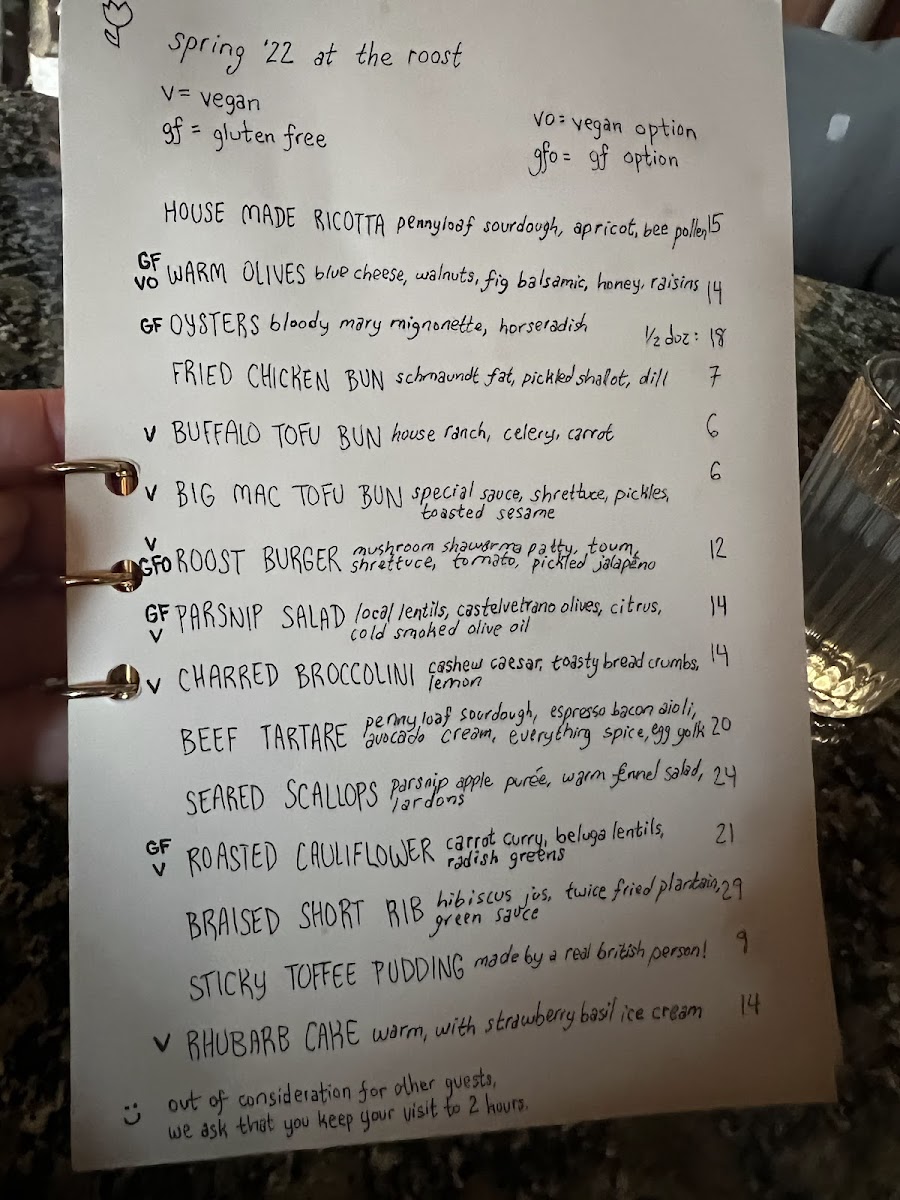 spring '22 at the roost
v = vegan
gf = gluten free
vo = vegan option
gfo = gf option
HOUSE MADE RICOTTA pennyloaf sourdough, apricot, bee pollen 15
GF
VO WARM OLIVES blue cheese, walnuts, fig balsamic, honey, raisins 14
GF OYSTERS bloody mary mignonette, horseradish 1/2 doz: 18
FRIED CHICKEN BUN schmaundt fat, pickled shallot, dill 7
V BUFFALO TOFU BUN house ranch, celery, carrot 6
V BIG MAC TOFU BUN special sauce, shrettuce, pickles, 6
toasted sesame
V
GFO ROOST BURGER mushroom shawarma patty, toum, 12
shrettuce, tomato, pickled jalapeño
GF
V PARSNIP SALAD local lentils, castelvetrano olives, citrus, 14
cold smoked olive oil
V CHARRED BROCCOLINI cashew caesar, toasty bread crumbs, 14
lemon
BEEF TARTARE pennyloaf sourdough, espresso bacon aioli,
avocado cream, everything spice, egg yolk 20
SEARED SCALLOPS parsnip apple purée, warm fennel salad, 24
lardons
GF
V ROASTED CAULIFLOWER carrot curry, beluga lentils, 21
radish greens
BRAISED SHORT RIB hibiscus jus, twice fried plantain, 29
green sauce
STICKY TOFFEE PUDDING made by a real british person! 9
V RHUBARB CAKE warm, with strawberry basil ice cream 14
:) out of consideration for other guests,
we ask that you keep your visit to 2 hours.